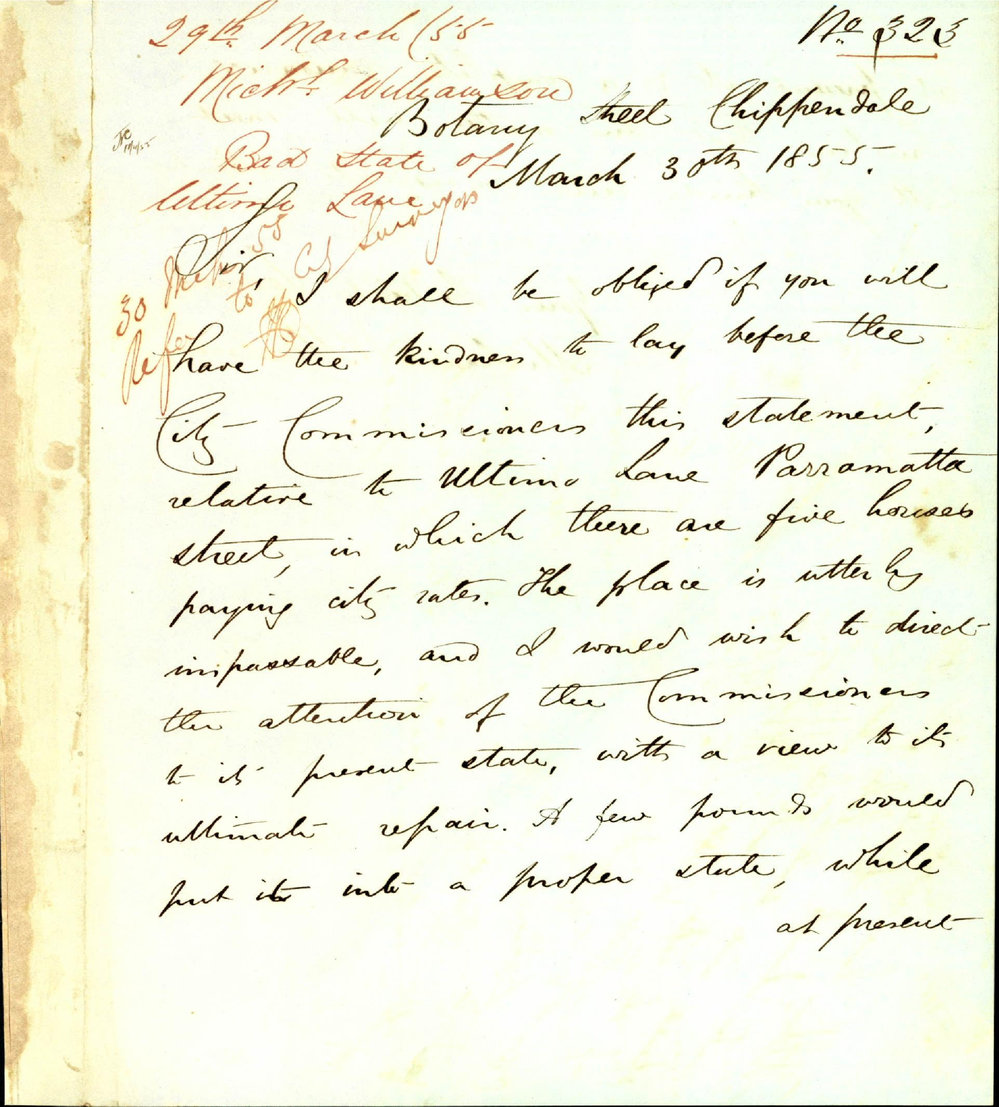 29th March /55
No 323
Michl Williamson
Botany Street Chippendale
Bad State of
March 30th 1855.
Ultimo Lane
30 Mch 55
Refer to City Surveyor
Sir,
I shall be obliged if you will
have the kindness to lay before the
City Commissioners this statement,
relative to Ultimo Lane Parramatta
street, in which there are five houses
paying city rates. The place is utterly
impassable, and I would wish to direct
the attention of the Commissioners
to its present state, with a view to its
ultimate repair. A few pounds would
put it into a proper state, while
at present